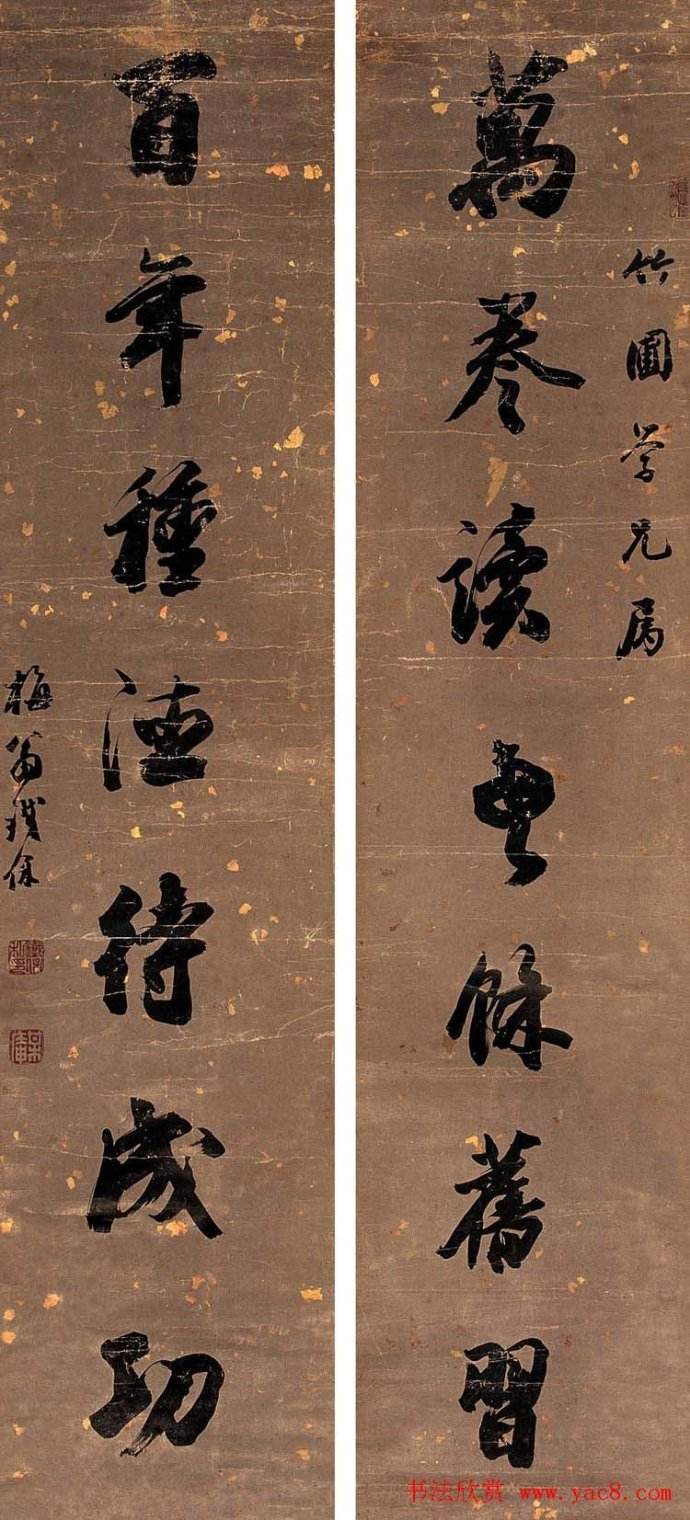 竹圃学兄属
萬卷讀書餘舊習
百年種德待成功
梅翁鐵保
书法欣赏 www.yac8.com